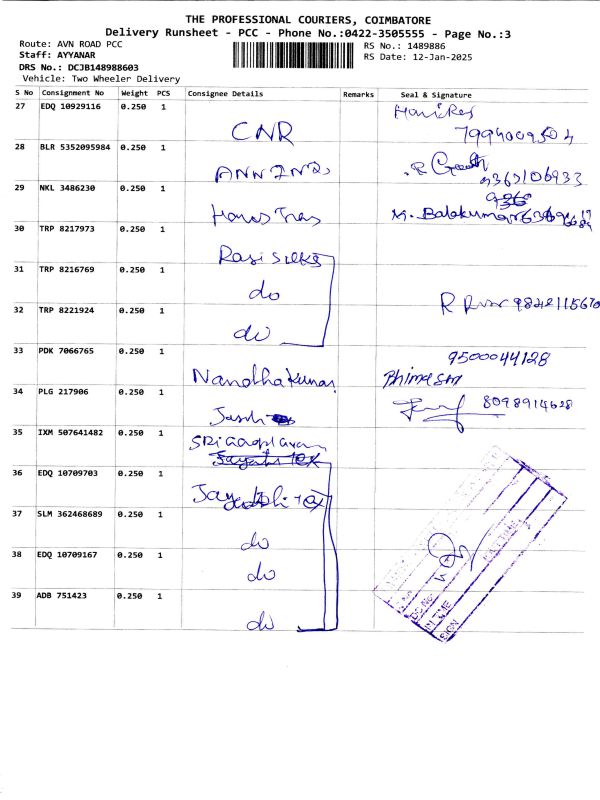 THE PROFESSIONAL COURIERS, COIMBATORE
Delivery Runsheet - PCC - Phone No.:0422-3505555 - Page No.:3
Route: AVN ROAD PCC
Staff: AYYANAR
DRS No.: DCJB148988603
Vehicle: Two Wheeler Delivery
RS No.: 1489886
RS Date: 12-Jan-2025
S No Consignment No Weight PCS Consignee Details Remarks Seal & Signature
27 EDQ 10929116 0.250 1 CNR
28 BLR 5352095984 0.250 1
29 NKL 3486230 0.250 1 M. Balakumar
30 TRP 8217973 0.250 1 Rasi silks
31 TRP 8216769 0.250 1 do
32 TRP 8221924 0.250 1 do
33 PDK 7066765 0.250 1 Nandhakumar 9500044128
34 PLG 217906 0.250 1 8098914628
35 IXM 507641482 0.250 1
36 EDQ 10709703 0.250 1
37 SLM 362468689 0.250 1 do
38 EDQ 10709167 0.250 1 do
39 ADB 751423 0.250 1 do
IN TIME
SIGN